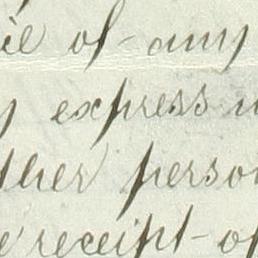 of any
express
ther person
receipt of